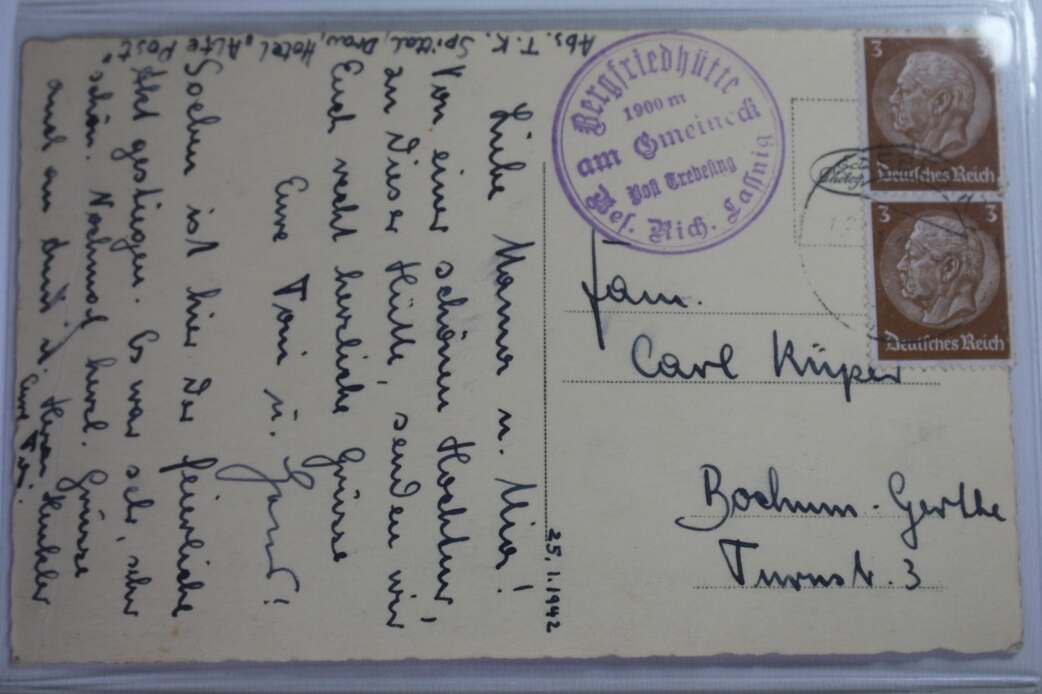 Abs. T. K. Spittal, Drau, Hotel „Alte Post"
25.1.1942
Liebe Mama u. Mia!
Von einer schönen Hochtour,
zu dieser Hütte, senden wir
Euch recht herzliche Grüsse
Eure Toni u.
Soeben ist hier der feierliche
Akt gestiegen. Es war sehr, sehr
schön. Nochmal herzl. Grüsse
auch an
Herrn
Eure Toni.
Bergfriedhütte
1900 m
am Gmeineck
Post Trebesing
Bes. Mich. Laßnig
3 3
Deutsches Reich
3 3
Deutsches Reich
Fam.
Carl Küper
Bochum-Gerthe
Turnstr. 3